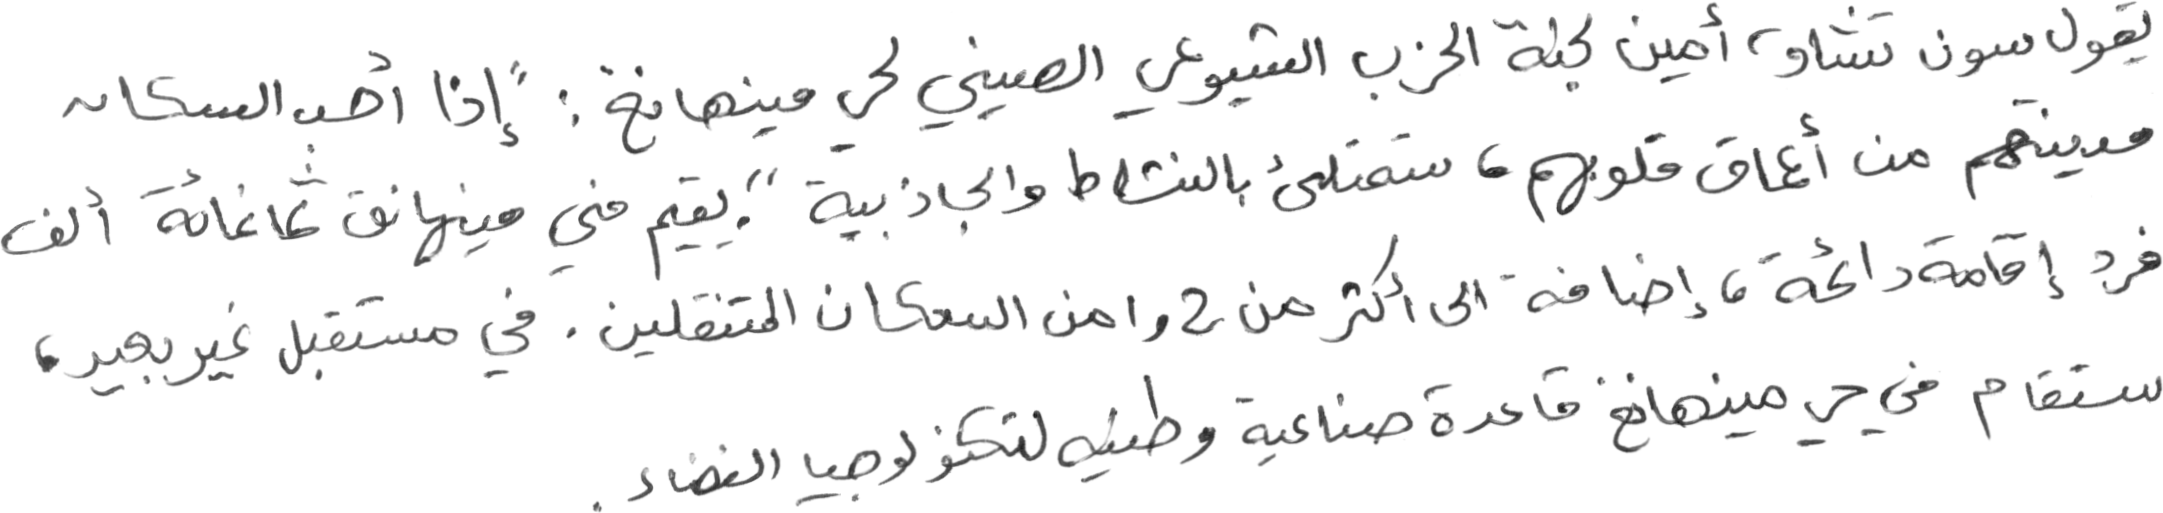 يقول سون تشاو، أمين لجنة الحزب الشيوعي الصيني لحي مينهانغ: "إذا أحب السكان
مدينتهم من أعماق قلوبهم، ستمتلئ بالنشاط والجاذبية". يقيم في مينهانق ثمانمائة ألف
فرد إقامة دائمة، إضافة الى أكثر من 2,1 من السكان المتنقلين. في مستقبل غير بعيد،
ستقام في حي مينهانغ قاعدة صناعية وطنية لتكنولوجيا الفضاء.